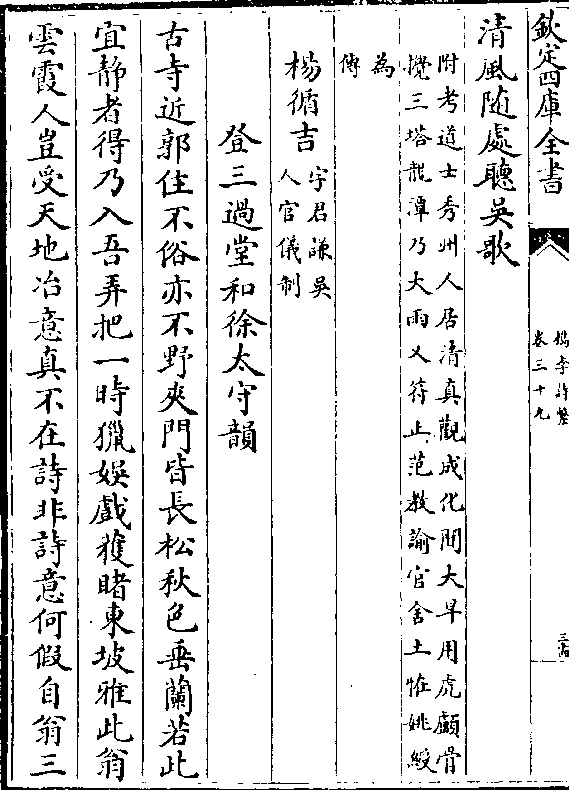 欽定四庫全書
檇李詩繫
卷三十九
清風随處聽吳歌
附考道士秀州人居清真觀成化間大旱用虎顱骨
攪三塔龍潭乃大雨又符止范教諭官舍土恠姚綬
為
傳
楊循吉
字君謙吳
人官儀制
登三過堂和徐太守韻
古寺近郭住不俗亦不野夾門皆長松秋色垂蘭若此
宜静者得乃入吾弄把一時獵娛戲獲睹東坡雅此翁
雲霞人豈受天地冶意真不在詩非詩意何假自翁三